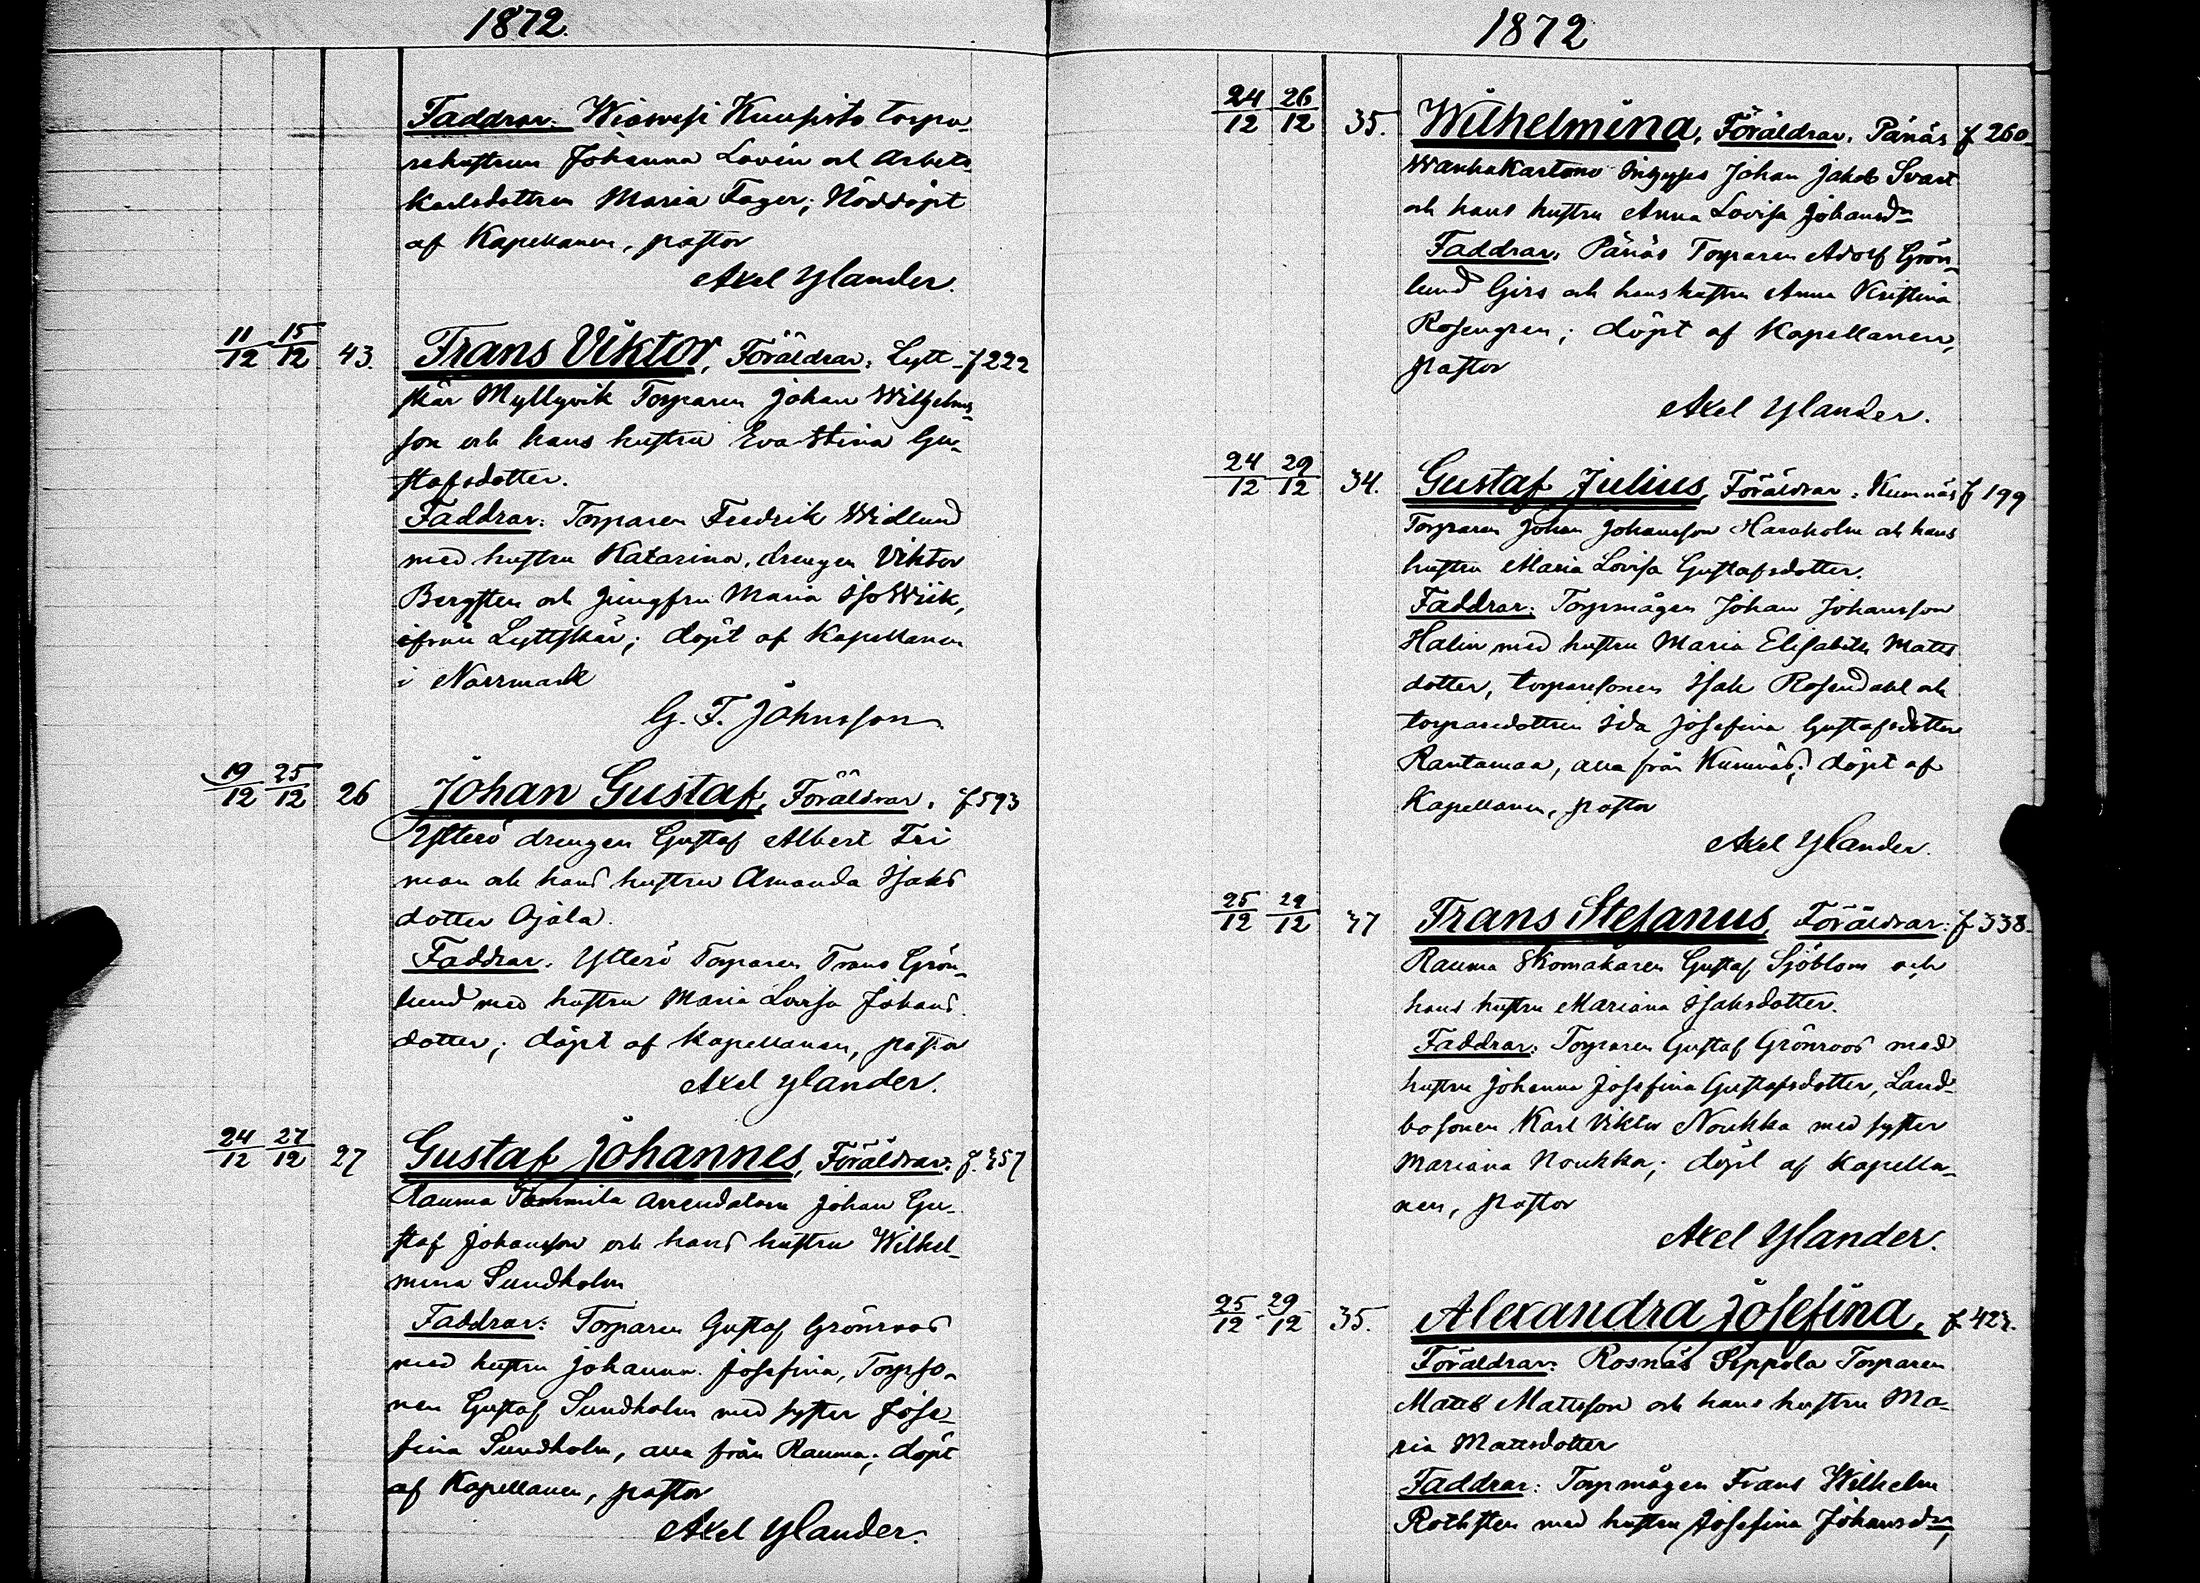 1872.
Faddrar: Kuusisto torpa-
rehustrun Johanna Lovén och Arbets-
karlsdottren Maria Fager; Nöddöpt
af Kapellanen, pastor
Axel Ylander.
11/12 15/12 43. Frans Viktor, Föräldrar: Lytt- f 222
skär Myllyvik Torparen Johan Wilhelms-
son och hans hustru Eva Stina Gu-
stafsdotter.
Faddrar: Torparen Fredrik Widlund
med hustru Katarina, drengen Viktor
Bergsten och jungfru Maria IsoWiik,
ifrån Lyttskär; döpt af Kapellanen
i Norrmark
G. F. Johnsson
19/12 25/12 26 Johan Gustaf, Föräldrar: f 593
Ytterö drengen Gustaf Albert Fri
man och hans hustru Amanda Isaks
dotter Ojala.
Faddrar: Ytterö Torparen Frans Grön-
lund med hustru Maria Lovisa Johans
dotter; döpt af Kapellanen, pastor
Axel Ylander.
24/12 27/12 27 Gustaf Johannes, Föräldrar: f. 357
Rauma Tommila Arrendatorn Johan Gu-
staf Johansson och hans hustru Wilhel-
mina Sundholm
Faddrar: Torparen Gustaf Grönroos
med hustru Johanna Josefina, Torpso-
nen Gustaf Sundholm med syster Jose-
fina Sundholm, alla från Rauma; döpt
af Kapellanen, pastor
Axel Ylander.
1872
24/12 26/12 35. Wilhelmina, Föräldrar: Pänäs f 260
Wanhakartano Inhyses Johan Jakob Svart
och hans hustru Anna Lovisa Johansdr
Faddrar: Pänäs Torparen Adolf Grön-
lund Girs och hans hustru Anna Kristina
Rosengren; döpt af Kapellanen,
pastor
Axel Ylander.
24/12 29/12 34. Gustaf Julius, Föräldrar: Kumnäs f 199
Torparen Johan Johansson Haraholm och hans
hustru Maria Lovisa Gustafsdotter.
Faddrar: Torpmågen Johan Johansson
Halin med hustru Maria Elisabeth Matts
dotter, torparesonen Isak Rosendahl och
torparedottren Ida Josefina Gustafsdotter
Rantamaa, alla från Kumnäs; döpt af
Kapellanen, pastor
Axel Ylander.
25/12 29/12 37 Frans Stefanus, Föräldrar: f 338
Rauma Skomakaren Gustaf Sjöblom och
hans hustru Mariana Isaksdotter.
Faddrar: Torparen Gustaf Grönroos med
hustru Johanna Josefina Gustafsdotter, Land-
bosonen Karl Viktor Noukka med syster
Mariana Noukka; döpt af Kapella-
nen, pastor
Axel Ylander.
25/12 29/12 35. Alexandra Josefina, f 423.
Föräldrar: Rosnäs Seppola Torparen
Matts Mattsson och hans hustru Ma-
ria Mattsdotter
Faddrar: Torpmågen Frans Wilhelm
Rothsten med hustru Josefina Johansdr,